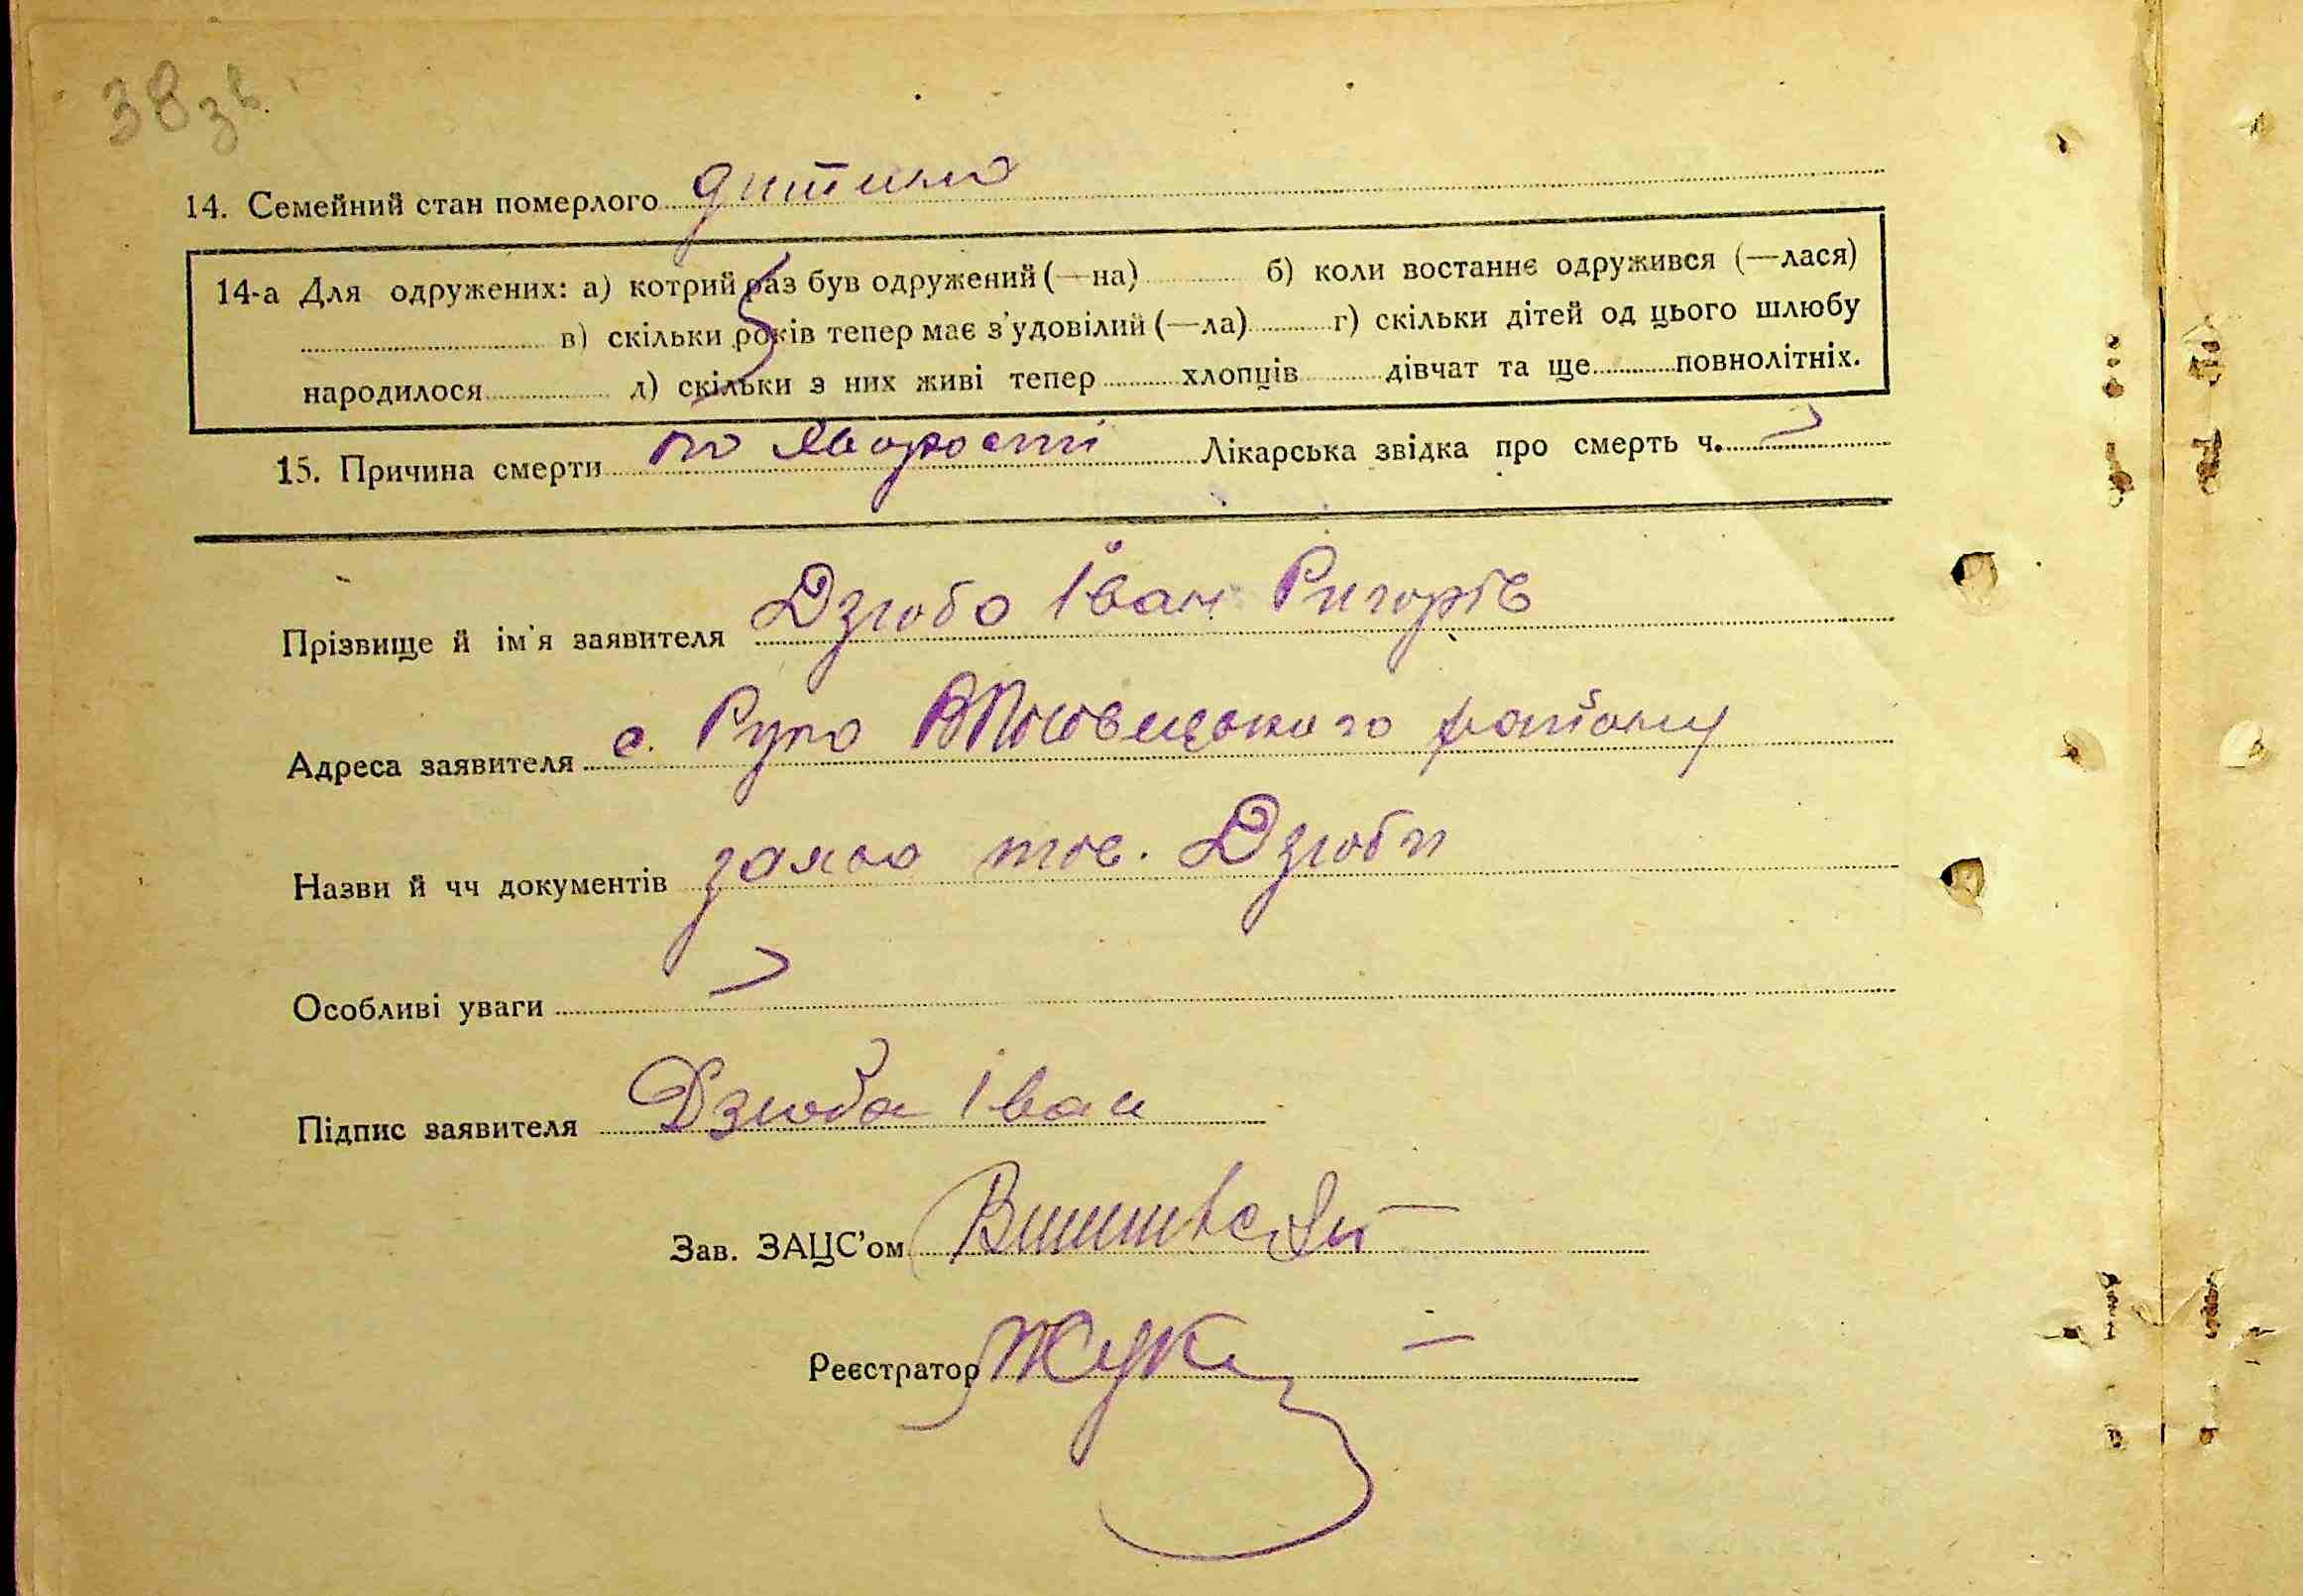 38 зв.
14. Семейний стан померлого дитина
14-а Для одружених: а) котрий раз був одружений (—на) б) коли востаннє одружився (—лася)
в) скільки років тепер має з'удовілий (—ла) г) скільки дітей од цього шлюбу
народилося д) скільки з них живі тепер хлопців дівчат та ще повнолітніх.
15. Причина смерти по хворості Лікарська звідка про смерть ч.
Прізвище й ім'я заявителя Дзюба Іван Григорів
Адреса заявителя с. району
Назви й чч документів заява тов. Дзюби
Особливі уваги
Підпис заявителя Дзюба Іван
Зав. ЗАЦС'ом
Реєстратор Жук